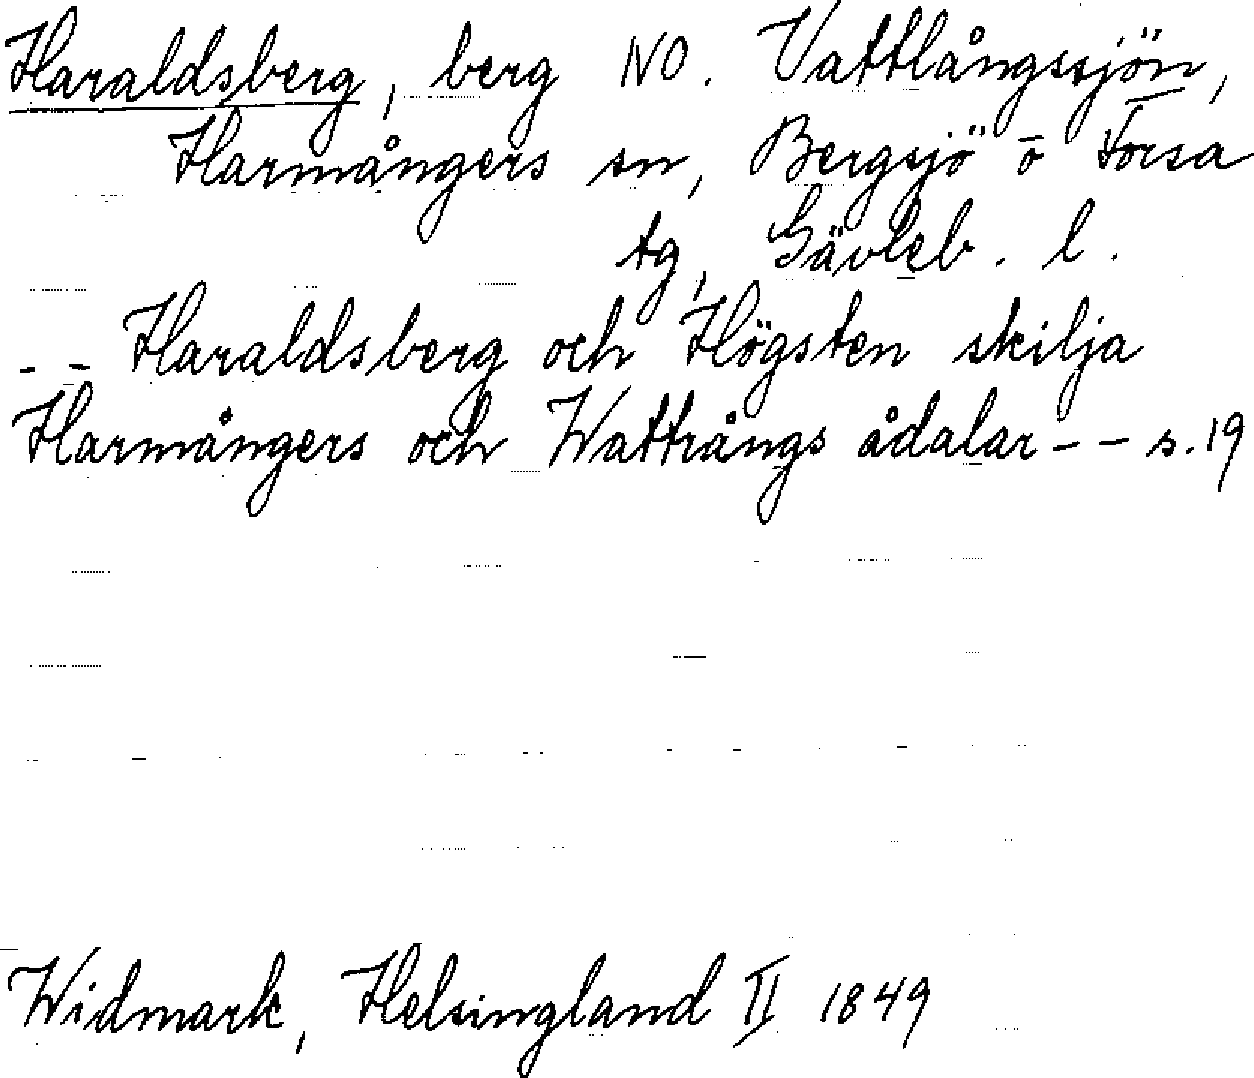 Haraldsberg, berg NO. Vattlångssjön,
Harmångers sn, Bergsjö o Forsa
tg, Gävleb. l.
-- Haraldsberg och Högsten skilja
Harmångers och Wattrångs ådalar -- s. 19
Widmark, Helsingland II 1849